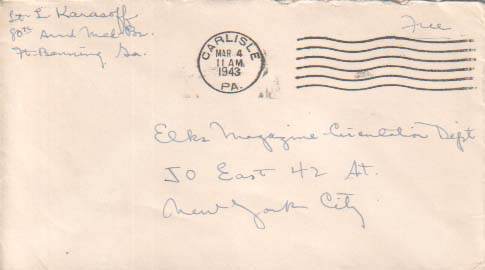 Lt. L Karasoff
80th Armd Med. Bn.
Ft. Benning Ga.
CARLISLE
MAR 4
11 AM
1943
PA.
Free
Elks Magazine - Circulation Dept
50 East 42 St.
New York City